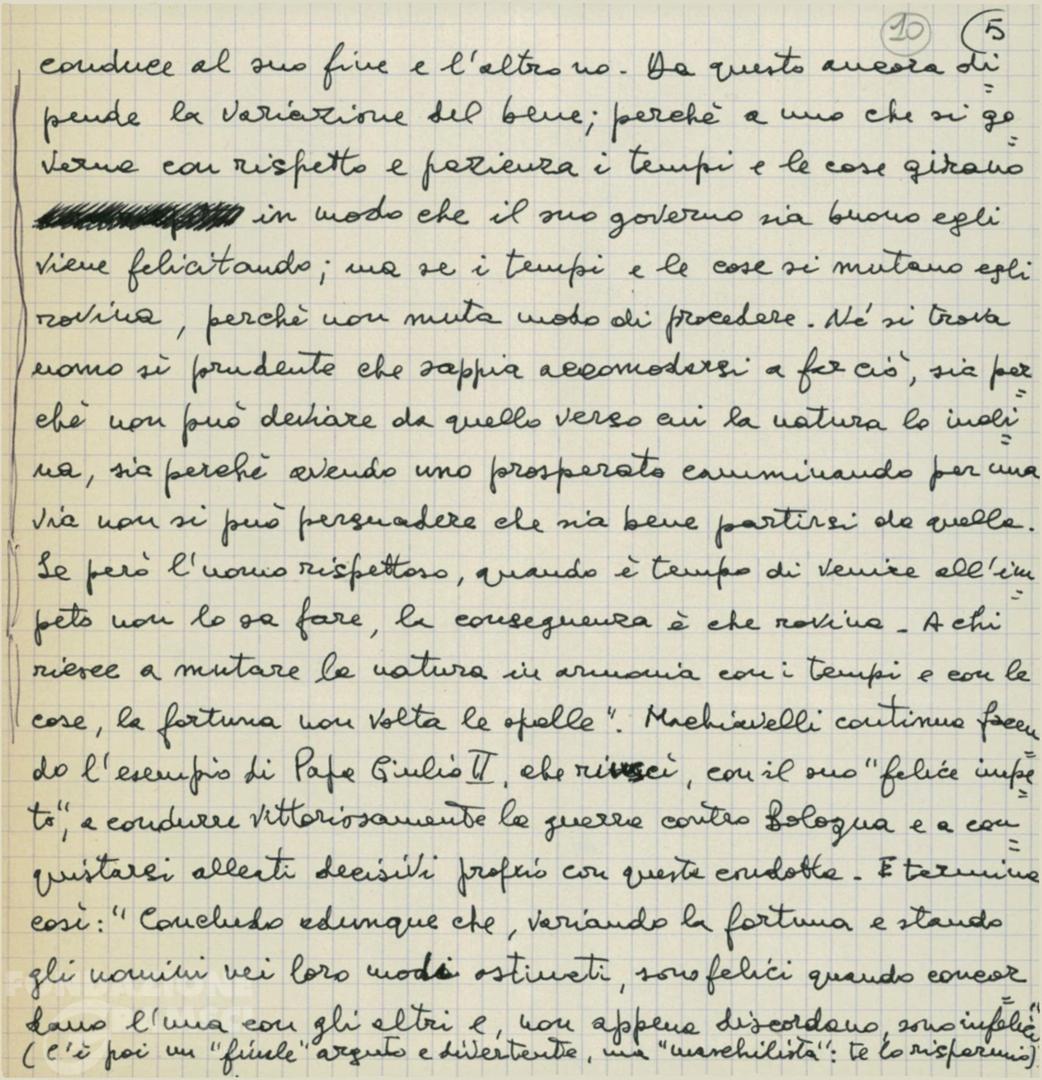 10 5
conduce al suo fine e l'altro no. Da questo ancora di=
pende la variazione del bene; perchè a uno che si go=
verna con rispetto e pazienza i tempi e le cose girano
in modo che il suo governo sia buono egli
viene felicitando; ma se i tempi e le cose si mutano egli
rovina, perchè non muta modo di procedere. Né si trova
uomo sì prudente che sappia accomodarsi a far ciò, sia per=
chè non può deviare da quello verso cui la natura lo incli=
na, sia perchè avendo uno prosperato camminando per una
via non si può persuadere che sia bene partirsi da quella.
Se però l'uomo rispettoso, quando è tempo di venire all'im=
peto non lo sa fare, la conseguenza è che rovina. A chi
riesce a mutare la natura in armonia con i tempi e con le
cose, la fortuna non volta le spalle". Machiavelli continua facen=
do l'esempio di Papa Giulio II, che riuscì, con il suo "felice impe=
to", a condurre vittoriosamente la guerra contro Bologna e a con=
quistarsi alleati decisivi proprio con questa condotta. E termina
così: "Concludo adunque che, variando la fortuna e stando
gli uomini nei loro modi ostinati, sono felici quando concor=
dano l'una con gli altri e, non appena discordano, sono infelici"
(C'è poi un "finale" arguto e divertente, ma "maschilista": te lo risparmio).